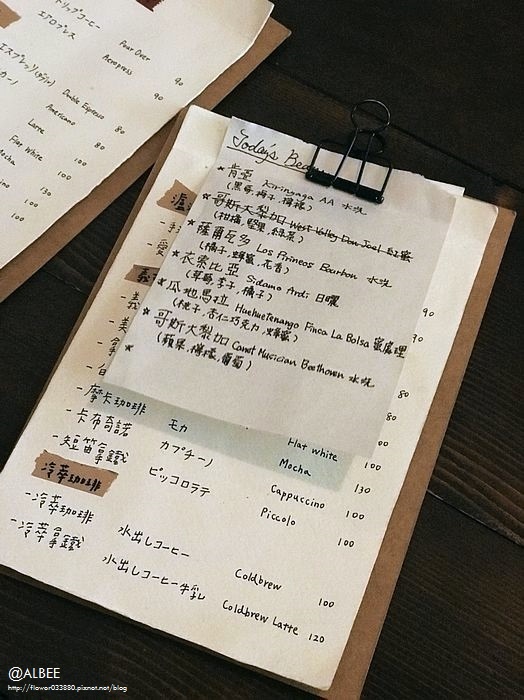 ドリップコーヒー Pour Over 90
エアロプレス Aeropress 90
エスプレッソ(ダブル) Double Espresso 80
Americano 80
Latte 100
Flat White 100
Mocha
100
100
Today's Bea
★肯亞 Kirinyaga AA 水洗
(黑莓,梅子,檸檬)
★哥斯大黎加 West Valley Don Joel 紅蜜
(柑橘,堅果,綠茶)
★薩爾瓦多 Los Pirineos Bourbon 水洗
(橘子,蜂蜜,花香)
★衣索比亞 Sidamo Ardi 日曬
(草莓,李子,橘子)
★瓜地馬拉 Huehuetenango Finca La Bolsa 蜜處理
(桃子,杏仁巧克力,蜂蜜)
★哥斯大黎加 Canet Musician Beethoven 水洗
(蘋果,檸檬,葡萄)
★
90
90
80
80
100
Flat White 100
-摩卡珈琲 モカ Mocha 130
-卡布奇諾 カプチーノ Cappuccino 100
-短笛拿鐵 ピッコロラテ Piccolo 100
冷萃珈琲
-冷萃珈琲 水出しコーヒー Coldbrew 100
-冷萃拿鐵 水出しコーヒー牛乳 Coldbrew Latte 120
@ALBEE
http://flower033880.pixnet.net/blog